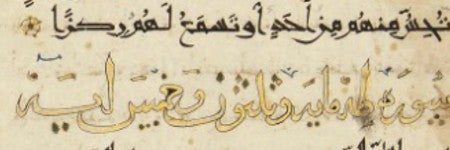 تُحِسُّ مِنْهُم مِّنْ أَحَدٍ أَوْ تَسْمَعُ لَهُمْ رِكْزًا
سورة طه مايه وثلثون وخمس اية